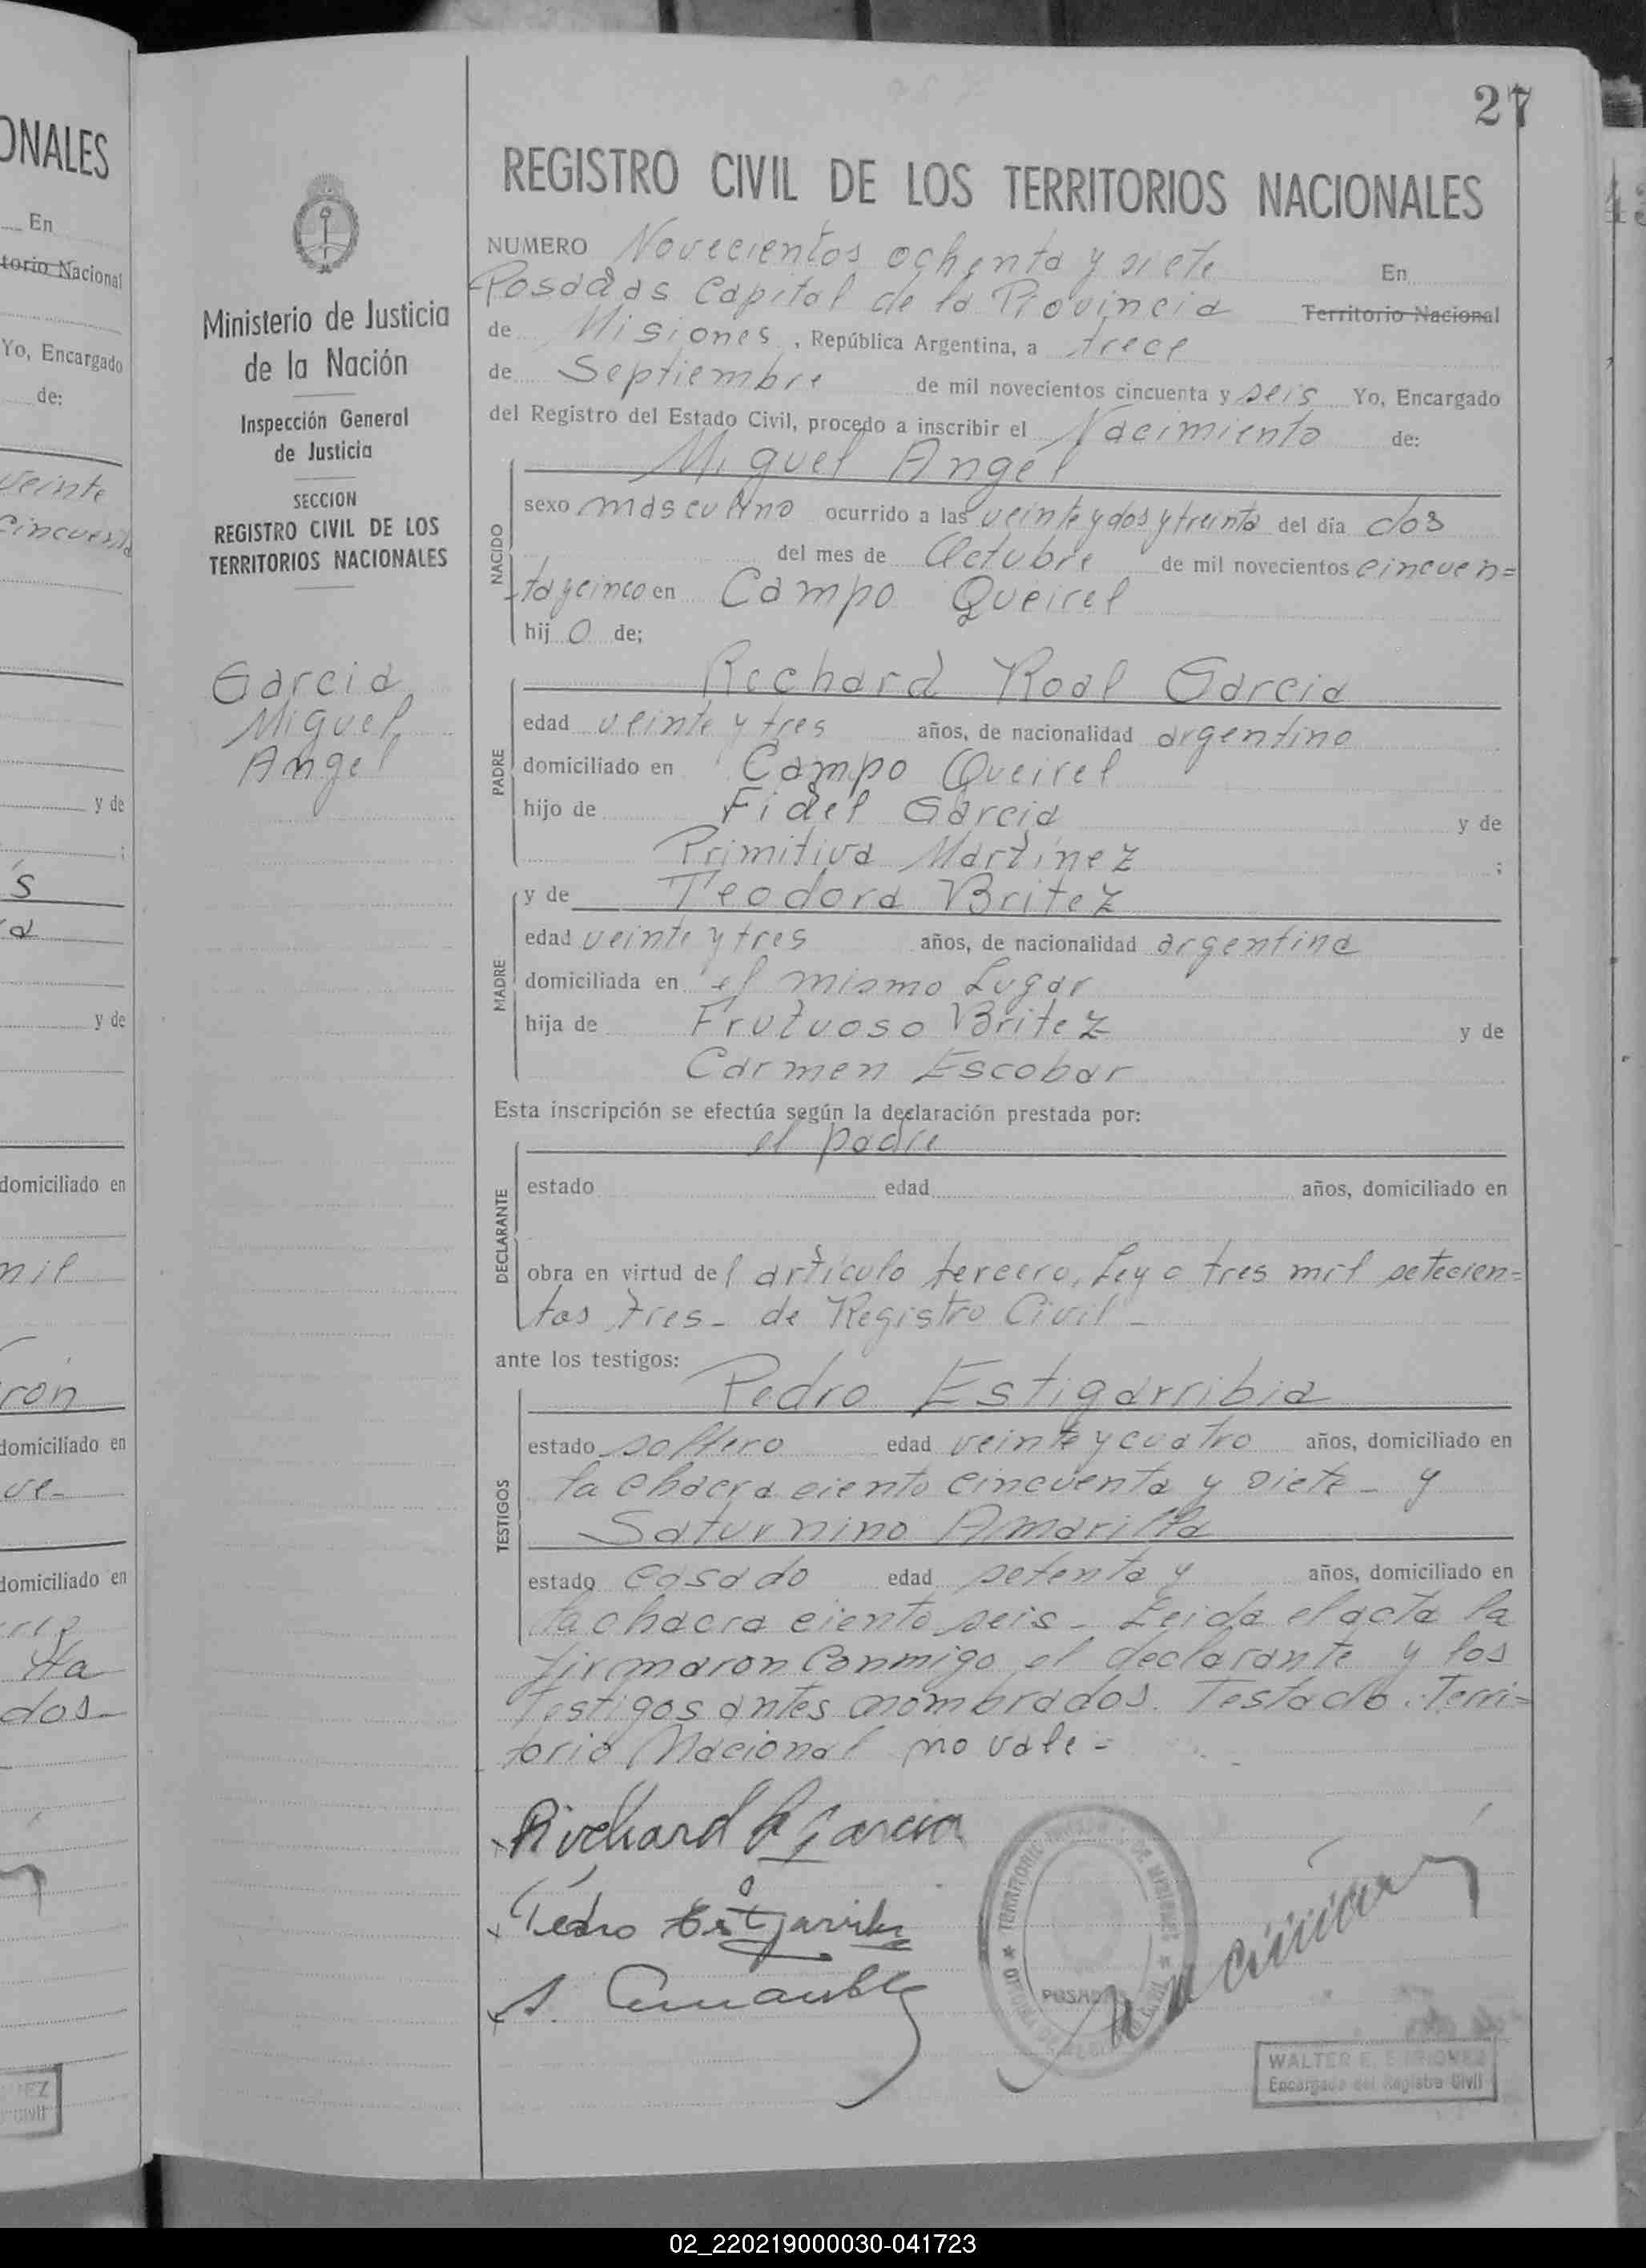 ONALES
En
torio Nacional
Yo, Encargado
de:
veinte
cincuenta
y de
;
s
a
y de
domiciliado en
mil
ron
domiciliado en
ve-
domiciliado en
ta
dos-
EZ
Civil
27
Ministerio de Justicia
de la Nación
Inspección General
de Justicia
SECCION
REGISTRO CIVIL DE LOS
TERRITORIOS NACIONALES
Garcia
Miguel
Angel
REGISTRO CIVIL DE LOS TERRITORIOS NACIONALES
NUMERO Novecientos ochenta y siete En
Posadas Capital de la Provincia Territorio Nacional
de Misiones, República Argentina, a trece
de Septiembre de mil novecientos cincuenta y seis Yo, Encargado
del Registro del Estado Civil, procedo a inscribir el Nacimiento de:
Miguel Angel
NACIDO
sexo masculino ocurrido a las veinte y dos y treinta del día dos
del mes de Octubre de mil novecientos cincuen=
ta y cinco en Campo Queirel
hij o de;
Rechard Roal Garcia
PADRE
edad veinte y tres años, de nacionalidad argentino
domiciliado en Campo Queirel
hijo de Fidel Garcia y de
Primitiva Martínez ;
y de Teodora Britez
MADRE
edad veinte y tres años, de nacionalidad argentina
domiciliada en el mismo Lugar
hija de Frutuoso Britez y de
Carmen Escobar
Esta inscripción se efectúa según la declaración prestada por:
el padre
DECLARANTE
estado edad años, domiciliado en
obra en virtud del artículo tercero, Ley o tres mil setecien=
tos tres- de Registro Civil-
ante los testigos:
Pedro Estigarribia
TESTIGOS
estado soltero edad veinte y cuatro años, domiciliado en
la chacra ciento cincuenta y siete- y
Saturnino Amarilla
estado casado edad setenta y años, domiciliado en
la chacra ciento seis- Leida el acta la
firmaron conmigo el declarante y los
testigos antes nombrados. Testado: Terri=
torio Nacional no vale-
Richard R Garcia
Pedro Estigarribia
S. Amarilla
TERRITORIO DE MISIONES
POSADAS
WALTER E. ENRIQUEZ
Encargado del Registro Civil
02_220219000030-041723